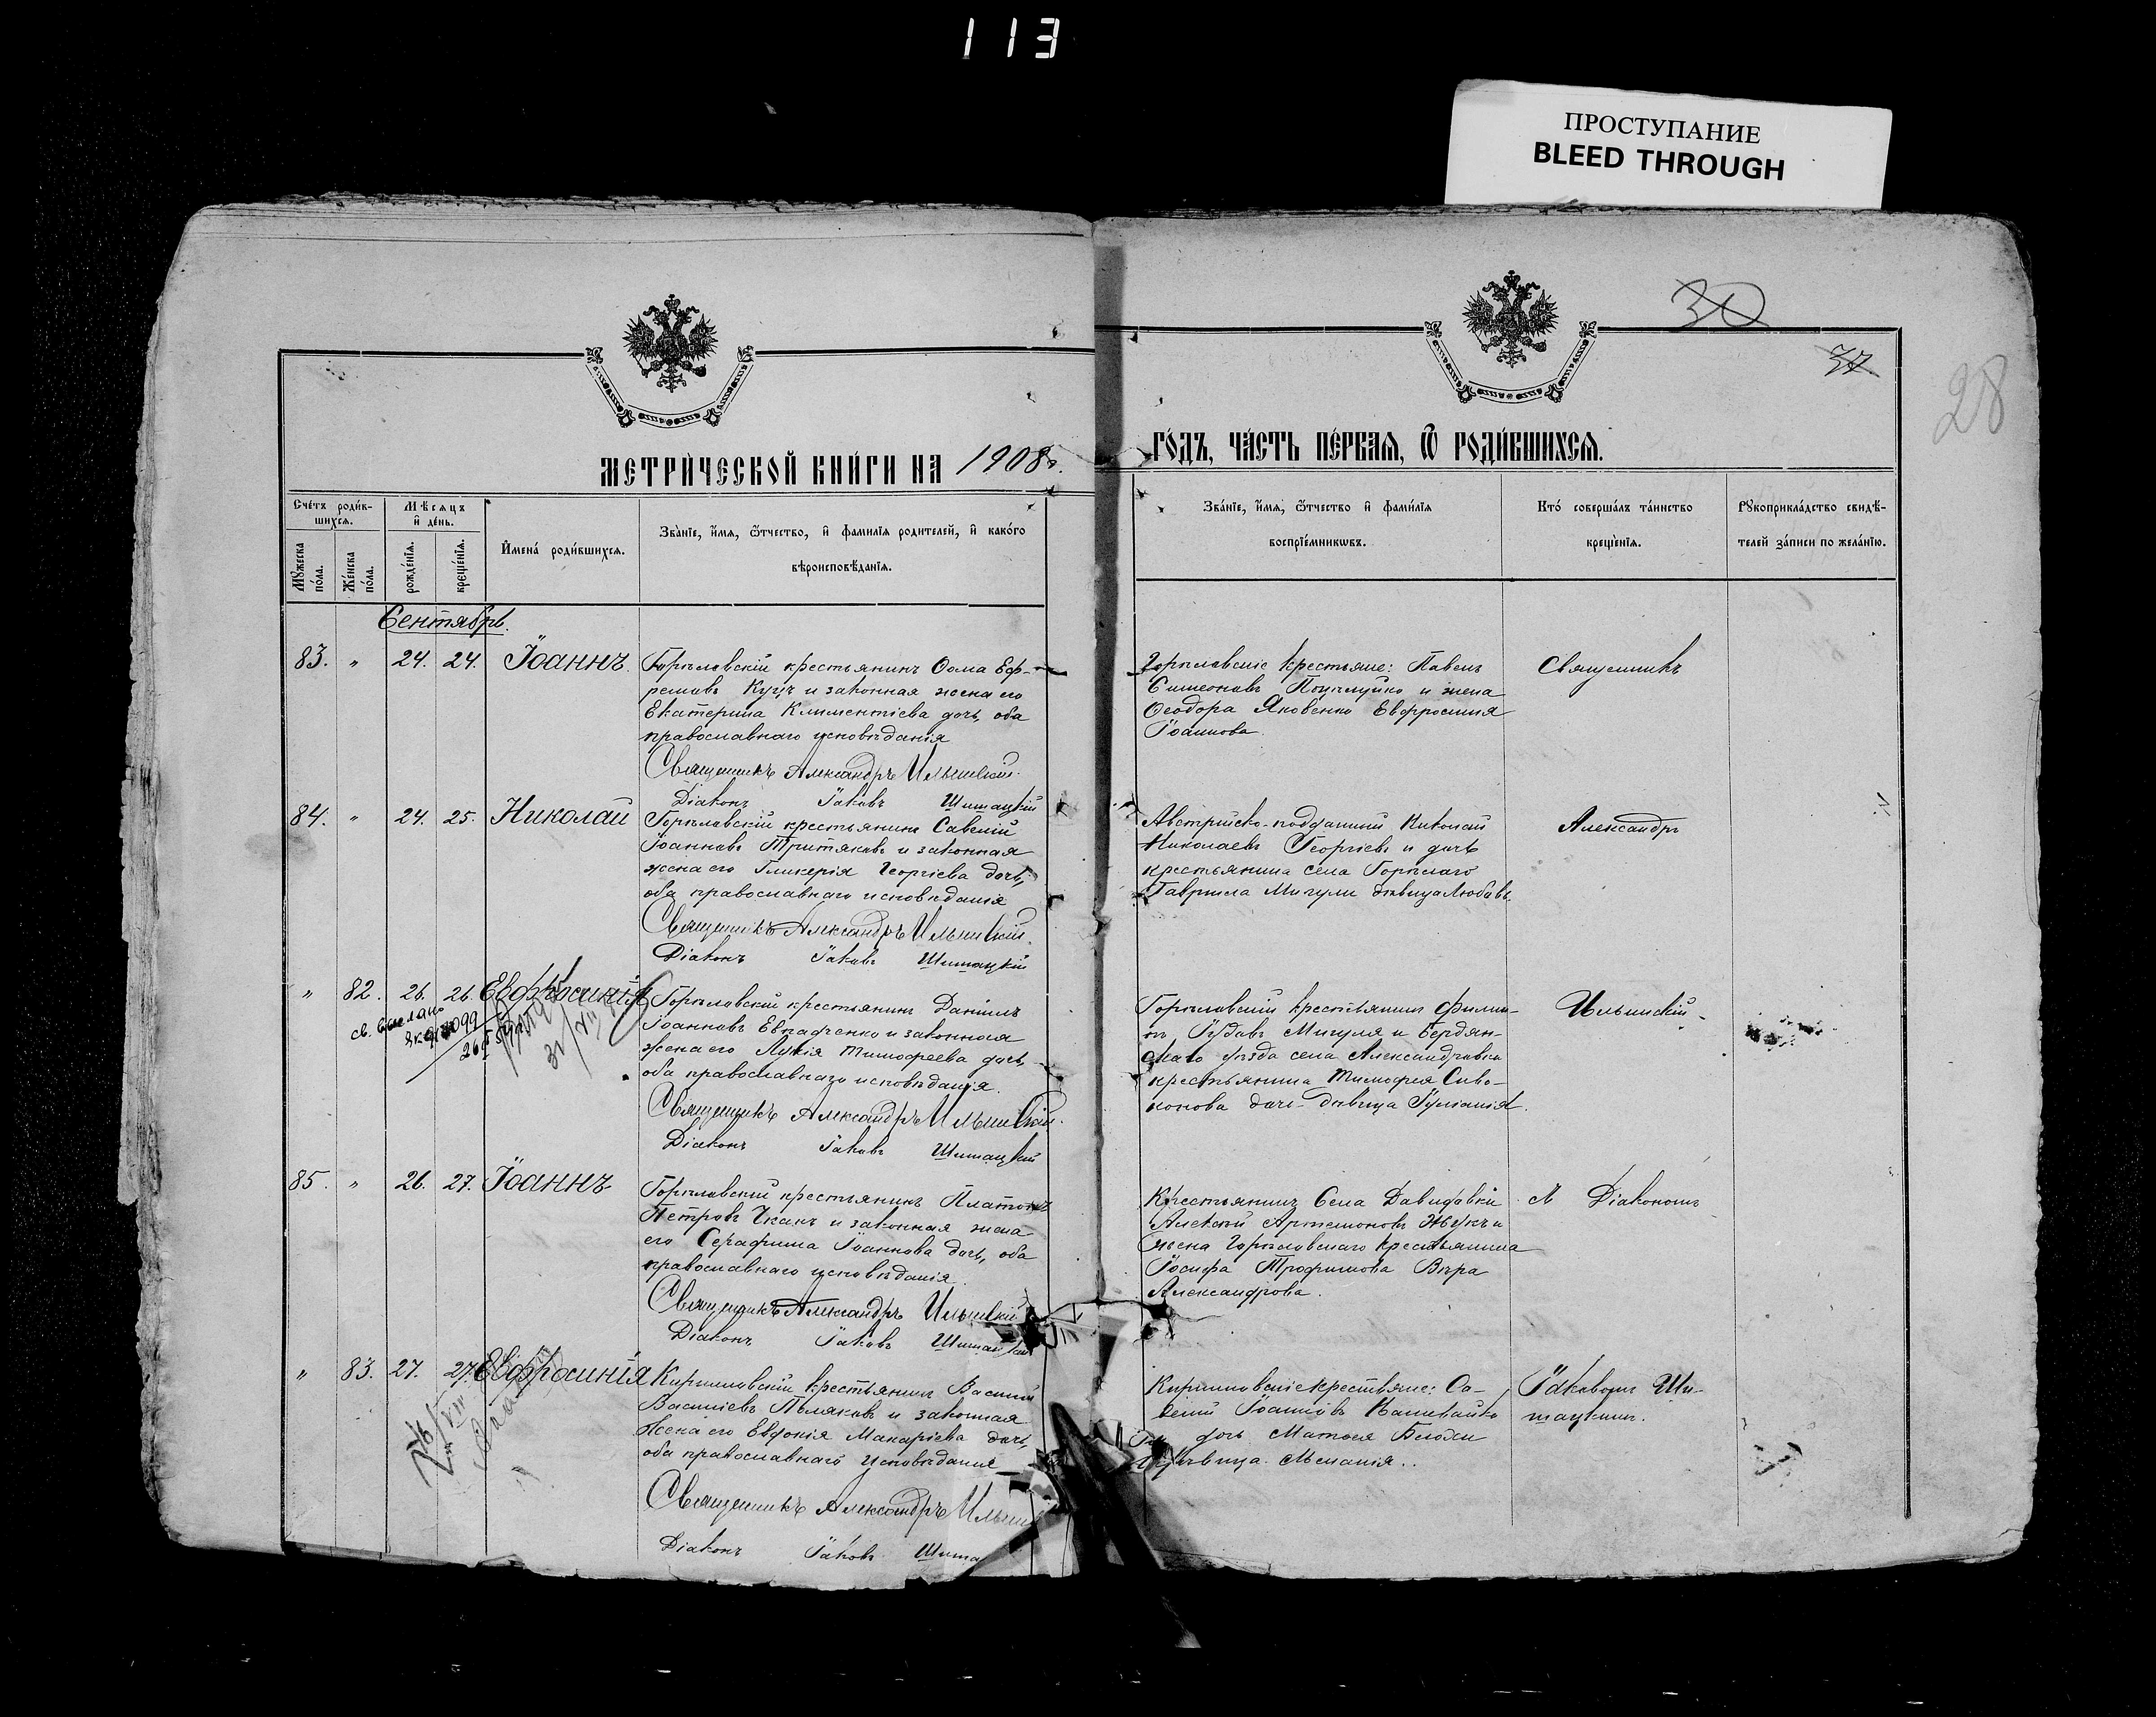 113
ПРОСТУПАНИЕ
BLEED THROUGH
30
37
28
МЕТРИ́ЧЕСКОЙ КНИ́ГИ НА 1908 г.
ГО́ДЪ, ЧА́СТЬ ПЕ́РВАѦ, Ѿ РОДИ́ВШИХСѦ.
Сче́тъ роди́в-
шихсѧ.
Мѣсѧцъ
и҆ де́нь.
Мꙋжеска
по́ла.
Же́нска
по́ла.
рожде́нїѧ.
креще́нїѧ.
И҆мена́ роди́вшихсѧ.
Зва́нїе, и҆́мѧ, ѻ҆́тчество, и҆ фами́лїѧ родителей, и҆ како́го
вѣроисповѣ́данїѧ.
Зва́нїе, и҆́мѧ, ѻ҆́тчество и҆ фами́лїѧ
воспрїе́мникѡвъ.
Кто́ соверша́лъ та́инство
креще́нїѧ.
Рꙋкоприкла́дство свидѣ́-
телей за́писи по жела́нїю.
Сентябрь.
83. " 24. 24. Іоаннъ.
Горѣловскій крестьянинъ Ѳома Еф-
ремовъ Куцъ и законная жена его
Екатерина Климентіева дочь, оба
православнаго исповѣданія
Священникъ Александръ Ильинскій.
Діаконъ Іаковъ Шишацкій
Горѣловскіе крестьяне: Павелъ
Симеоновъ Поцѣлуйко и жена
Ѳеодора Яковенко Евфросинія
Іоаннова.
Священникъ
84. " 24. 25. Николай
Горѣловскій крестьянинъ Савелій
Іоанновъ Третяковъ и законная
жена его Гликерія Георгіева дочь,
оба православнаго исповѣданія
Священникъ Александръ Ильинскій.
Діаконъ Іаковъ Шишацкій
Австрійско-подданный Николай
Николаевъ Георгіевъ и дочь
крестьянина села Горѣлаго
Гавриила Мигули дѣвица Любовь.
Александръ
" 82. 26. 26. Евфросинія
св. выслано
26
31/VII
Горѣловскій крестьянинъ Даніилъ
Іоанновъ Евпадченко и законная
жена его Лукія Тимофеева дочь,
оба православнаго исповѣданія.
Священникъ Александръ Ильинскій.
Діаконъ Іаковъ Шишацкій
Горѣловскій крестьянинъ Филип-
пъ Іудовъ Мигуля и Бердян-
скаго уѣзда села Александровки
крестьянина Тимофея Сиво-
конова дочь дѣвица Іуліанія.
Ильинскій
85. " 26. 27. Іоаннъ
Горѣловскій крестьянинъ Платонъ
Петровъ Чканъ и законная жена
его Серафима Іоаннова дочь, оба
православнаго исповѣданія.
Священникъ Александръ Ильинскій
Діаконъ Іаковъ Шишацкій
Крестьянинъ села Давидовки
Алексій Артемоновъ Жукъ и
жена Горѣловскаго крестьянина
Іосифа Трофимова Вѣра
Александрова.
съ Діакономъ
" 83. 27. 27. Евфросинія
Кирилловскій крестьянинъ Василій
Василіевъ Поляковъ и законная
жена его Евдокія Макаріева дочь,
оба православнаго исповѣданія
Священникъ Александръ Ильин
Діаконъ Іаковъ Шиша
Кирилловскіе крестьяне: Са-
велій Іоанновъ Нашивайко
дочь Матѳея Блохи
дѣвица Меланія.
Іаковомъ Ши-
шацкимъ.